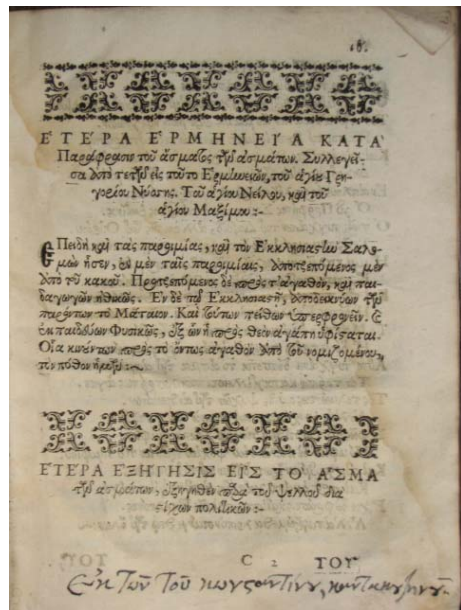 ΕΤΕΡΑ ΕΡΜΗΝΕΙΑ ΚΑΤΑ
Παράφρασιν τοῦ ἄσματος τῶν ἀσμάτων. Συλλεγεῖ-
σα ἀπὸ τε τῶν εἰς τοῦτο Ἑρμηνειῶν, τοῦ ἁγίου Γρη-
γορίου Νύσσης. Τοῦ ἁγίου Νείλου, καὶ τοῦ
ἁγίου Μαξίμου :-
ΕΠειδὴ καὶ ταῖς παροιμίαις, καὶ τὸν Ἐκκλησιαστὴν Σαλο-
μὼν ἦσεν, ἐν μὲν ταῖς παροιμίαις, ἀποτρεπόμενος μὲν
ἀπὸ τοῦ κακοῦ. Προτρεπόμενος δὲ πρὸς τ' ἀγαθὸν, καὶ παι-
δαγωγῶν ἠθικῶς. Ἐν δὲ τῷ Ἐκκλησιαστῇ, ἀποδεικνύων τῶν
παρόντων τὸ Μάταιον. Καὶ τούτων πείθων ὑπερφρονεῖν.
ἐκπαιδεύων Φυσικῶς, ἐξ ὧν ἡ πρὸς θεὸν ἀγάπη ὑφίσταται.
Οἷα κινούντων πρὸς τὸ ὄντως ἀγαθὸν ἀπὸ τοῦ νομιζομένου,
τὸν πόθον
ΕΤΕΡΑ ΕΞΗΓΗΣΙΣ ΕΙΣ ΤΟ ΑΣΜΑ
τῶν ἀσμάτων, ἐξηγηθὲν παρὰ τοῦ Ψελλοῦ διὰ
στίχων πολιτικῶν :-
C 2 ΤΟΥ
Ἐκ τῶν τοῦ